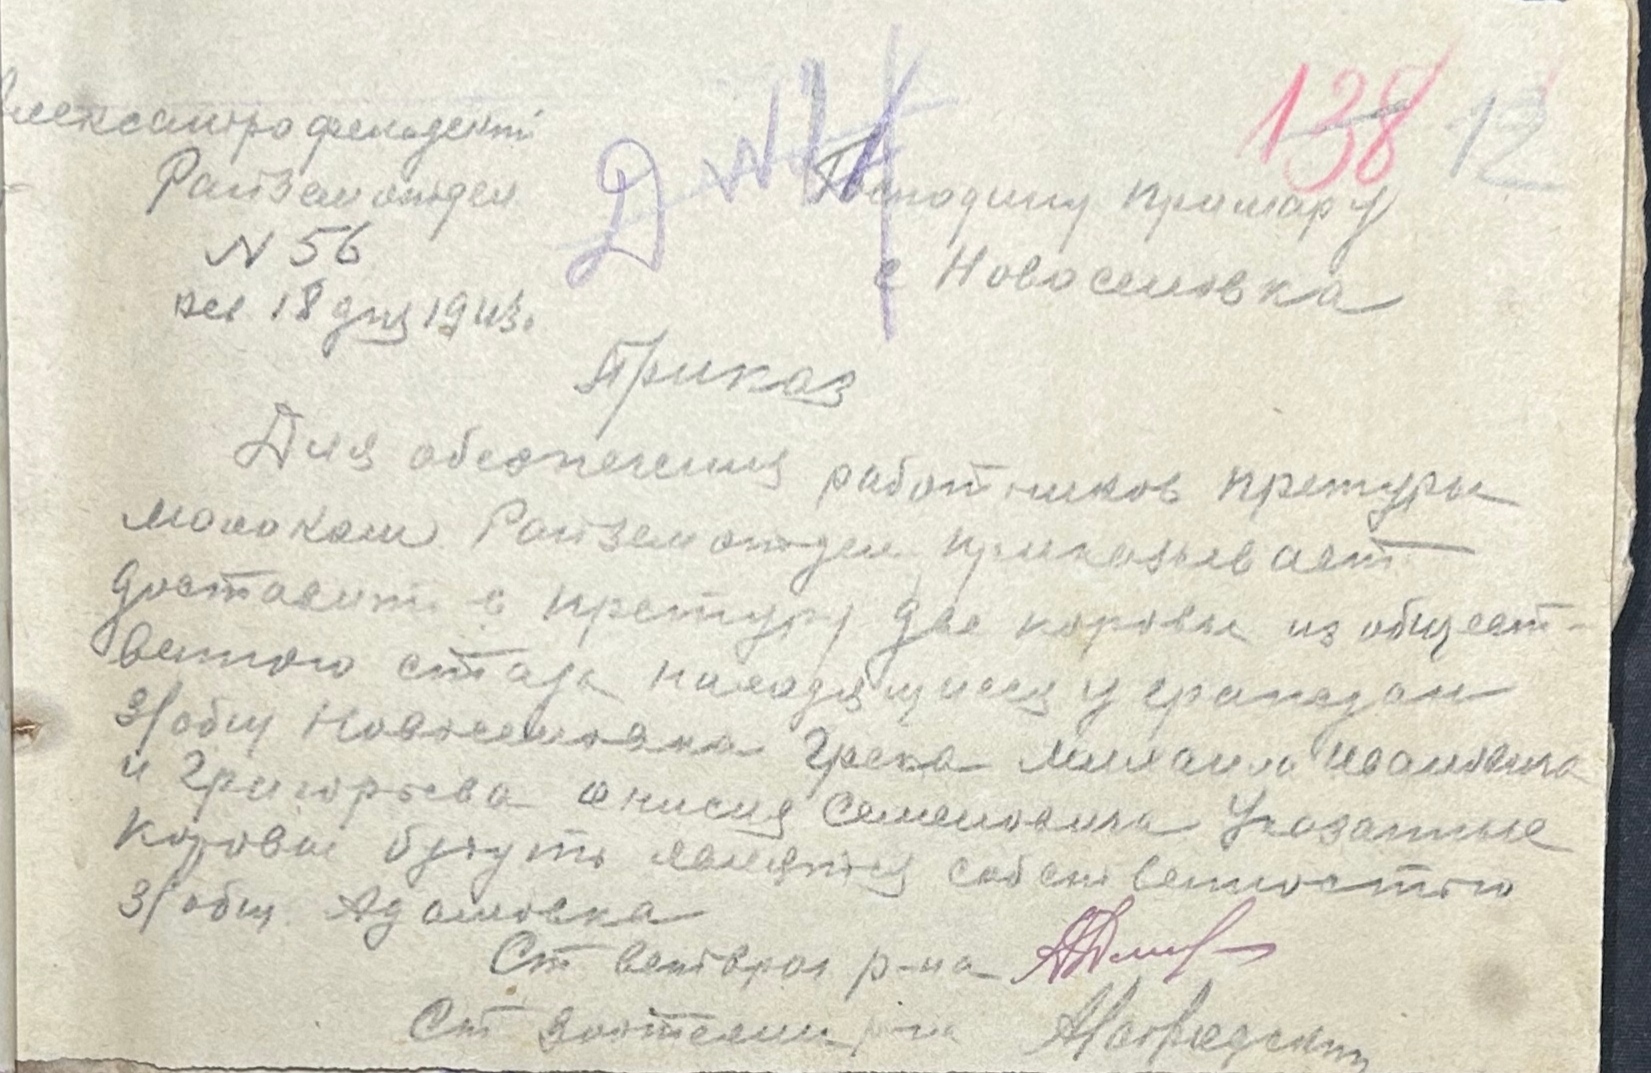 Александрофельдский
Райземотдел
N 56
18 дня 1943.
Д N 11
138 12
Господину Примару
с Новоселовка
Приказ
Для обеспечения работников претуры
молоком Райземотдел приказывает
доставить в претуру две коровы из общест-
венного стада находящиеся у граждан
з/общ Новоселовка Грека Михаила Ивановича
и Григорьева Анисия Семеновича Указанные
коровы будут являться собственностью
з/общ. Адамовка
Ст ветврач р-на
Ст зоотехник р-на